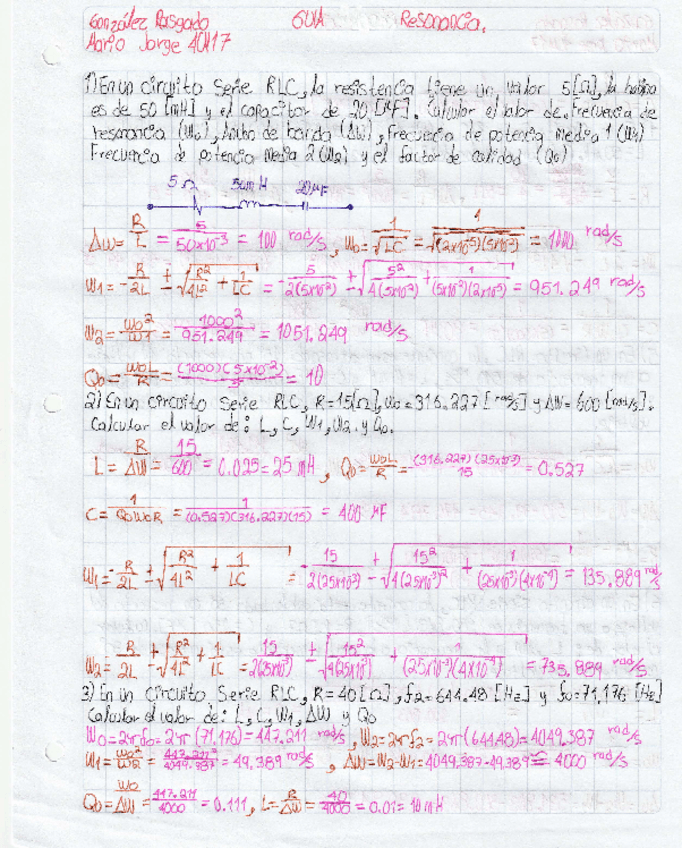 González Rasgado GUIA Resonancia.
Mario Jorge 4CM17
1) En un circuito Serie RLC, la resistencia tiene un valor 5[Ω], la bobina
es de 50 [mH] y el capacitor de 20 [µF]. Calcular el valor de. Frecuencia de
resonancia (W0), Ancho de banda (ΔW), Frecuencia de potencia media 1 (W1)
Frecuencia de potencia media 2 (W2) y el factor de calidad (Q0)
5Ω 50mH 20µF
ΔW= R/L = 5/50x10^-3 = 100 rad/s, W0= 1/√LC = 1/√(2x10^-5)(5x10^-2) = 1000 rad/s
W1= -R/2L ± √R²/4L² + 1/LC = -5/2(5x10^-2) ± √5²/4(5x10^-2) + 1/(5x10^-2)(2x10^-5) = 951.249 rad/s
W2= W0²/W1 = 1000²/951.249 = 1051.249 rad/s
Q0= W0L/R = (1000)(5x10^-2)/5 = 10
2) En un circuito Serie RLC, R=15[Ω], W0=316.227 [rad/s] y ΔW=600 [rad/s].
Calcular el valor de: L, C, W1, W2. y Q0.
L= R/ΔW = 15/600 = 0.025=25 mH, Q0= W0L/R = (316.227)(25x10^-3)/15 = 0.527
C= 1/Q0W0R = 1/(0.527)(316.227)(15) = 400 µF
W1= -R/2L ± √R²/4L² + 1/LC = -15/2(25x10^-3) ± √15²/4(25x10^-3)² + 1/(25x10^-3)(4x10^-4) = 135.889 rad/s
W2= R/2L ± √R²/4L² + 1/LC = 15/2(25x10^-3) ± √15²/4(25x10^-3) + 1/(25x10^-3)(4x10^-4) = 735.889 rad/s
3) En un Circuito Serie RLC, R=40[Ω], f2=644.48 [Hz] y f0=71.176 [Hz]
Calcular el valor de: L, C, W1, ΔW y Q0
W0=2πf0=2π(71.176)=447.211 rad/s, W2=2πf2=2π(644.48)=4049.387 rad/s
W1= W0²/W2 = 447.211²/4049.387 = 49.389 rad/s, ΔW=W2-W1=4049.387-49.389≅4000 rad/s
Q0= W0/ΔW = 447.211/4000 = 0.111, L= R/ΔW = 40/4000 = 0.01=10 mH